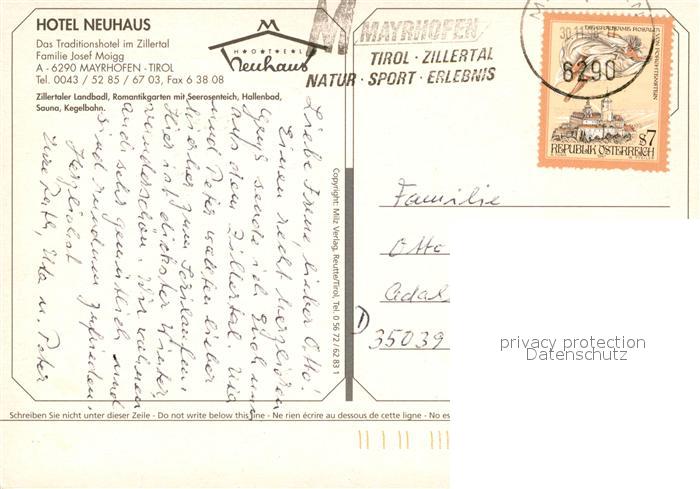 HOTEL NEUHAUS
Das Traditionshotel im Zillertal
Familie Josef Moigg
A - 6290 MAYRHOFEN - TIROL
Tel. 0043 / 52 85 / 67 03, Fax 6 38 08
Zillertaler Landbadl, Romantikgarten mit Seerosenteich, Hallenbad,
Sauna, Kegelbahn.
HOTEL
Neuhaus
MAYRHOFEN
TIROL · ZILLERTAL
NATUR · SPORT · ERLEBNIS
6290
S7
REPUBLIK ÖSTERREICH
Liebe Irene, lieber Otto!
Einen recht herzlichen
Gruß sende ich Euch
aus dem Zillertal.
und Peter wollten lieber
zum
Hier ist dickster Winter
wunderschön. Wir wohnen
auch sehr gemütlich und
sind rundum zufrieden.
Herzlichst
Eure Uta u. Peter
Copyright: Milz Verlag, Reutte/Tirol, Tel. 0 56 72 / 62 83 1
Familie
Otto
Adal
D
35039
privacy protection
Datenschutz
Schreiben Sie nicht unter dieser Zeile - Do not write below this line - Ne rien écrire au dessous de cette ligne - No es